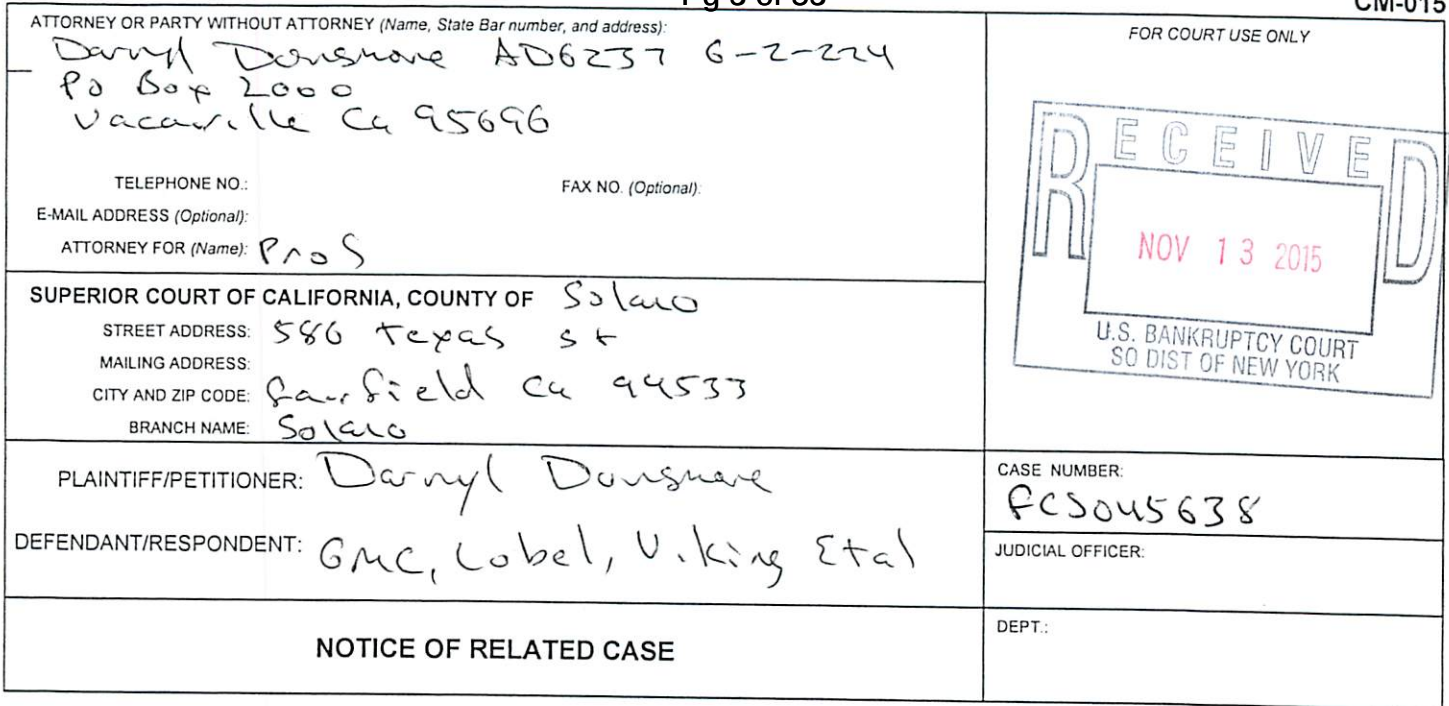 Pg 3 of 33
CM-015
ATTORNEY OR PARTY WITHOUT ATTORNEY (Name, State Bar number, and address):
Darryl Dunsmore AD6237 6-2-224
PO Box 2000
Vacaville Ca 95696
TELEPHONE NO.:
FAX NO. (Optional):
E-MAIL ADDRESS (Optional):
ATTORNEY FOR (Name): Pro S
FOR COURT USE ONLY
RECEIVED
NOV 13 2015
U.S. BANKRUPTCY COURT
SO DIST OF NEW YORK
SUPERIOR COURT OF CALIFORNIA, COUNTY OF Solano
STREET ADDRESS: 586 Texas St
MAILING ADDRESS:
CITY AND ZIP CODE: Fairfield Ca 94533
BRANCH NAME: Solano
PLAINTIFF/PETITIONER: Darryl Dunsmore
DEFENDANT/RESPONDENT: GMC, Lobel, Viking Etal
CASE NUMBER:
FCS045638
JUDICIAL OFFICER:
NOTICE OF RELATED CASE
DEPT.: